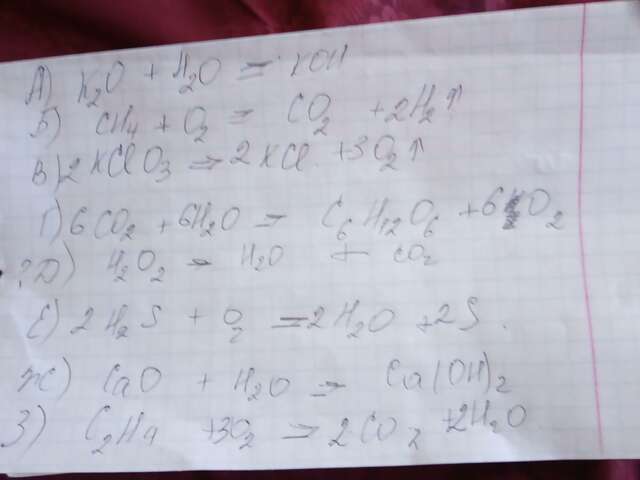 А) K₂O + H₂O = KOH
Б) CH₄ + O₂ = CO₂ + 2H₂↑
В) 2KClO₃ = 2KCl + 3O₂↑
Г) 6CO₂ + 6H₂O = C₆H₁₂O₆ + 6O₂
?Д) H₂O₂ = H₂O + CO₂
Е) 2H₂S + O₂ = 2H₂O + 2S.
Ж) CaO + H₂O = Ca(OH)₂
З) C₂H₄ + 3O₂ = 2CO₂ + 2H₂O